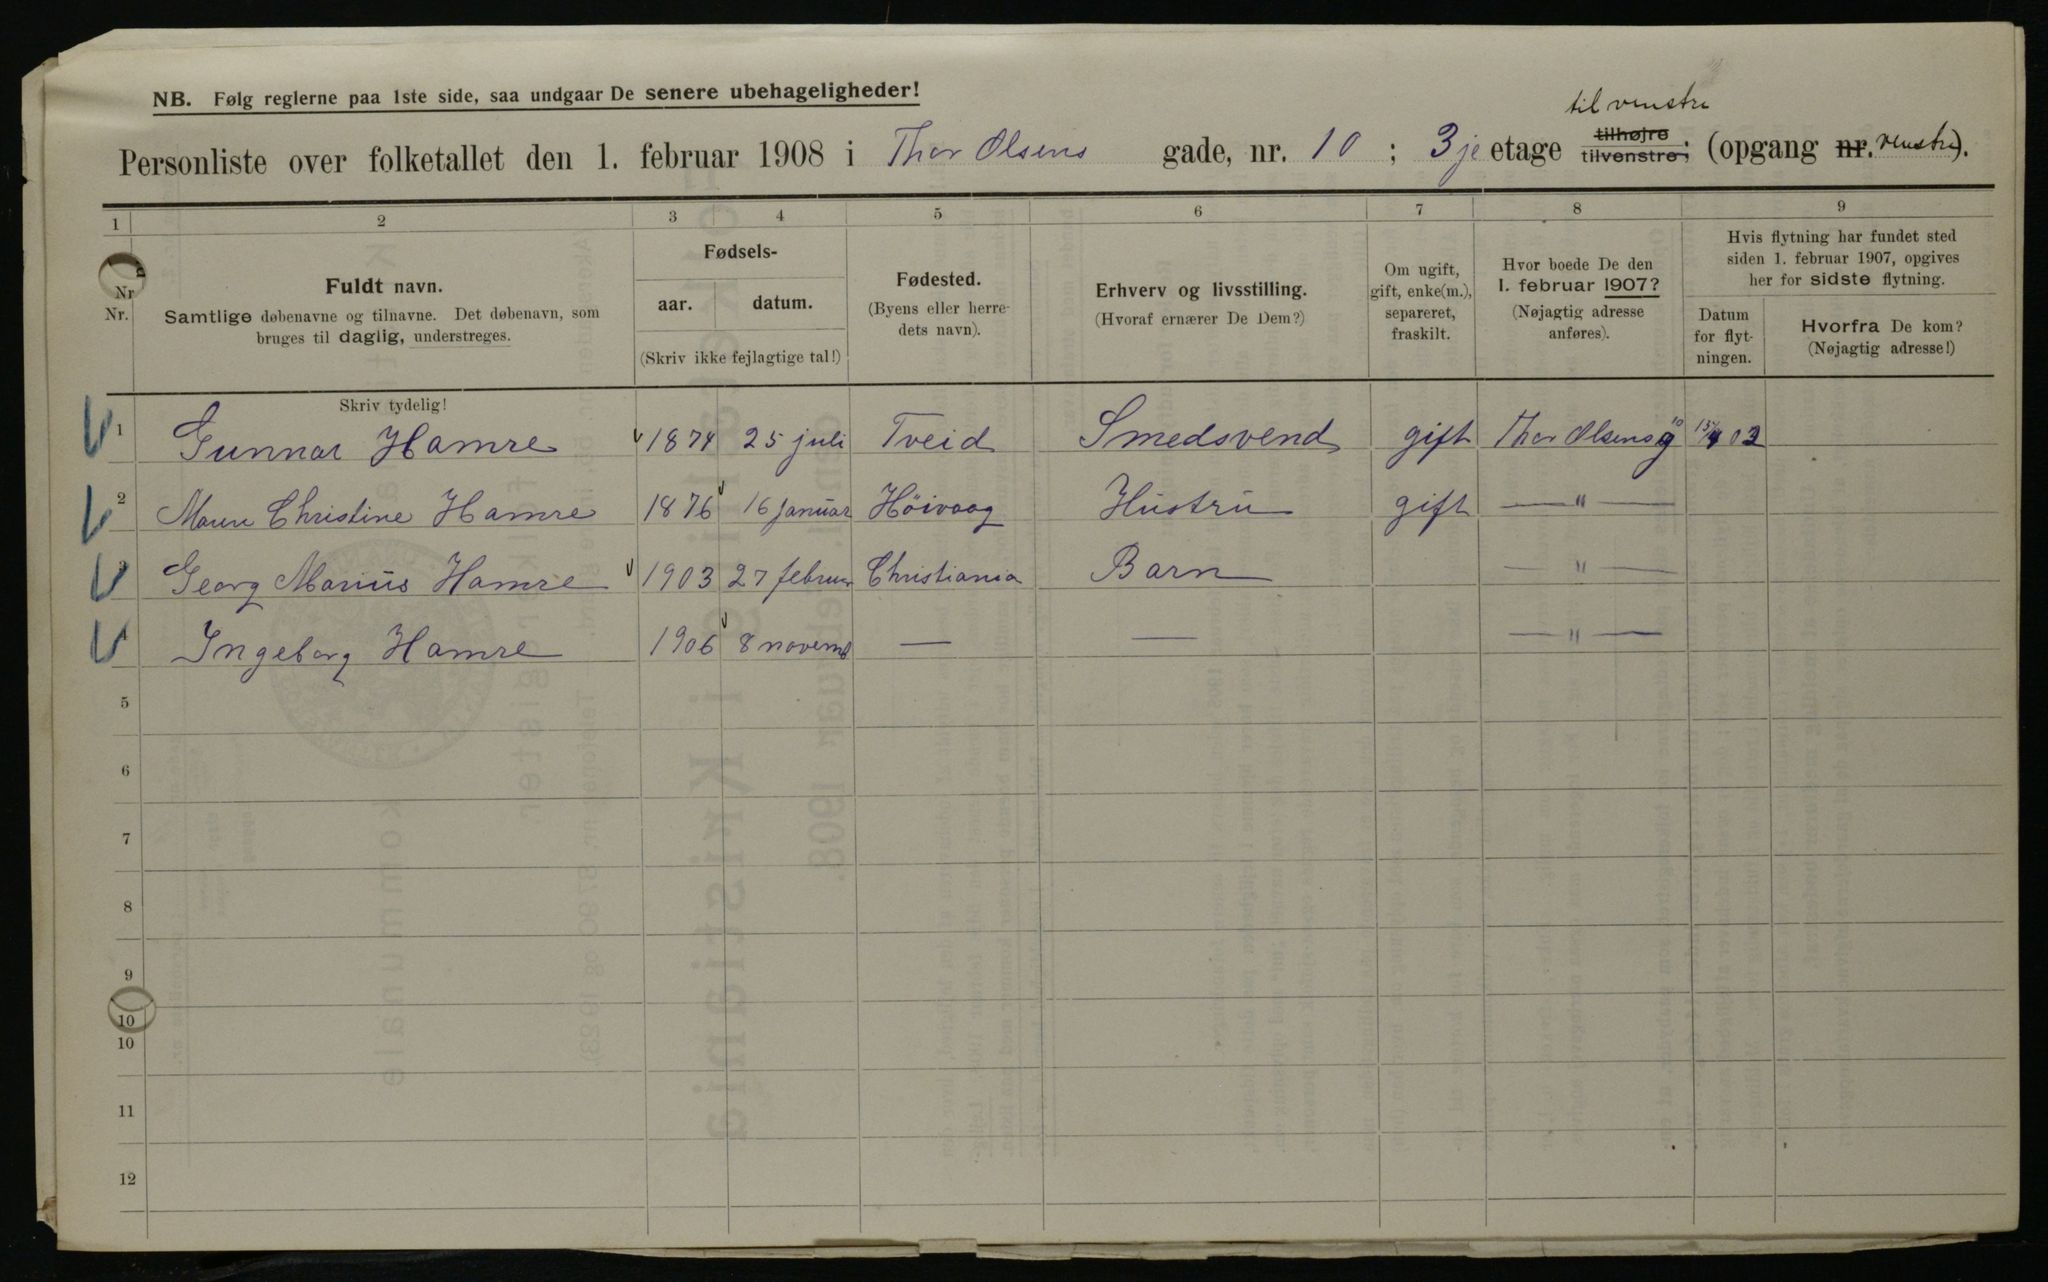 NB. Følg reglerne paa 1ste side, saa undgaar De senere ubehageligheder!
til venstre
Personliste over folketallet den 1. februar 1908 i Thor Olsens gade, nr. 10 ; 3je etage tilhøjre tilvenstre; (opgang nr. venstre).
1 2 3 4 5 6 7 8 9
Nr. Nr.
Fuldt navn.
Samtlige døbenavne og tilnavne. Det døbenavn, som
bruges til daglig, understreges.
Skriv tydelig!
Fødsels-
aar. datum.
(Skriv ikke fejlagtige tal!)
Fødested.
(Byens eller herre-
dets navn).
Erhverv og livsstilling.
(Hvoraf ernærer De Dem?)
Om ugift,
gift, enke(m.),
separeret,
fraskilt.
Hvor boede De den
1. februar 1907?
(Nøjagtig adresse
anføres).
Hvis flytning har fundet sted
siden 1. februar 1907, opgives
her for sidste flytning.
Datum
for flyt-
ningen.
Hvorfra De kom?
(Nøjagtig adresse!)
1 Gunnar Hamre 1874 25 juli Tveid Smedsvend gift Thor Olsensg 10 15/4 03
2 Maren Christine Hamre 1876 16 januar Høivaag Hustru gift — " —
3 Georg Marius Hamre 1903 27 februar Christiania Barn — " —
4 Ingeborg Hamre 1906 8 novemb — — — " —
5
6
7
8
9
10
10
11
12